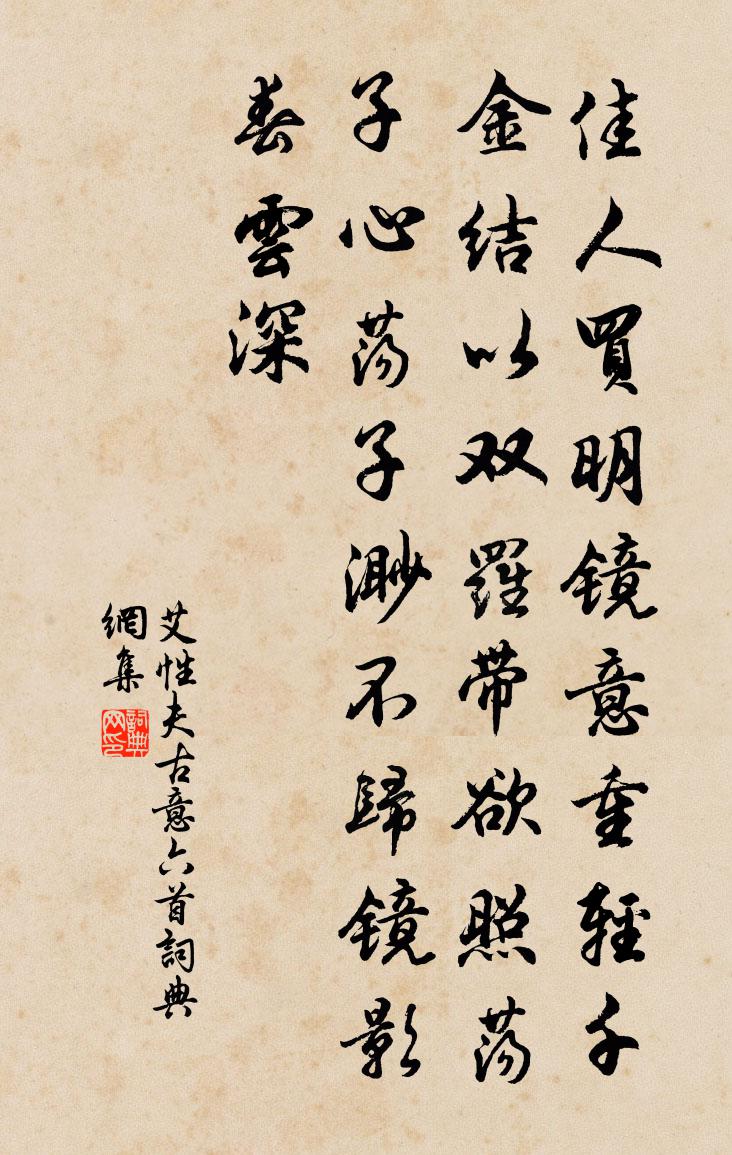 佳人買明鏡意重輕千
金結以双羅帶欲照蕩
子心蕩子渺不歸鏡影
春雲深
艾性夫古意六首詞典
網集
詞典网印